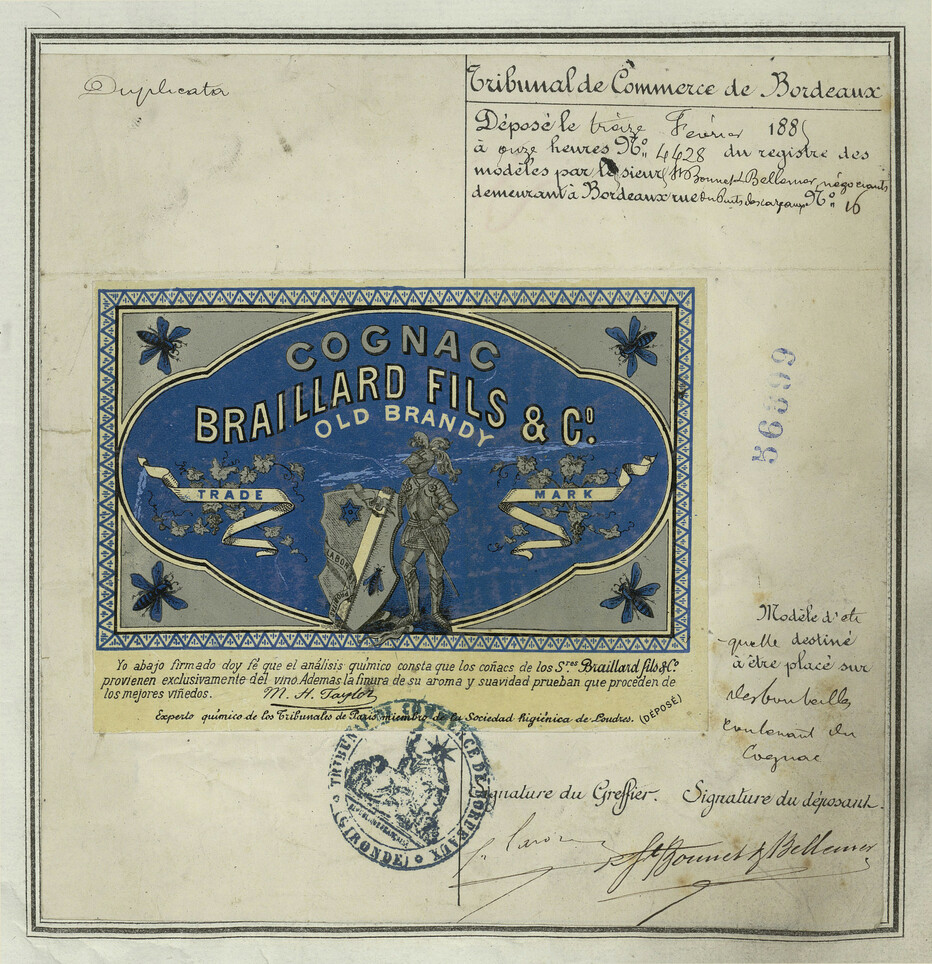 Duplicata
Tribunal de Commerce de Bordeaux
Déposé le treize Février 188
à onze heures N° 4428 du registre des
modèles par le sieur St Bonnet & Bellemer, négociants
demeurant à Bordeaux rue du Puits descazeaux N° 16
COGNAC
BRAILLARD FILS & Cº.
OLD BRANDY
TRADE MARK
LABOR
56899
Yo abajo firmado doy fé que el análisis quimico consta que los coñacs de los S.res Braillard fils & Cº.
provienen exclusivamente del vino. Ademas la finura de su aroma y suavidad prueban que proceden de
los mejores viñedos. M. H. Taylor
Experto quimico de los Tribunales de Paris miembro de la Sociedad higiénica de Londres. (DÉPOSÉ)
Modèle d'éti
quette destiné
à être placé sur
des bouteilles
contenant du
Cognac
TRIBUNAL DE COMMERCE DE BORDEAUX
(GIRONDE)
Signature du Greffier. Signature du déposant.
St Bonnet & Bellemer